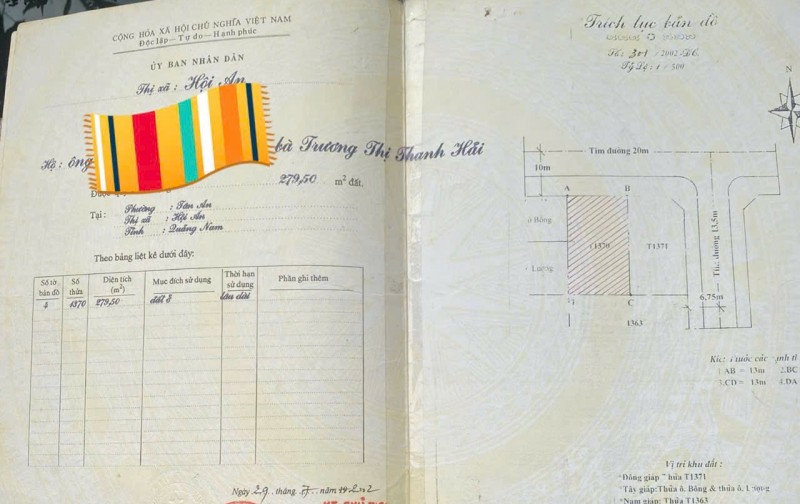 CỘNG HÒA XÃ HỘI CHỦ NGHĨA VIỆT NAM
Độc lập - Tự do - Hạnh phúc
ỦY BAN NHÂN DÂN
Thị xã : Hội An
Hộ : ông
bà Trương Thị Thanh Hải
279,50 m² đất.
Tại :
Phường : Tân An
Thị xã : Hội An
Tỉnh : Quảng Nam
Theo bảng liệt kê dưới đây:
Số tờ bản đồ
Số thửa
Diện tích (m²)
Mục đích sử dụng
Thời hạn sử dụng
Phần ghi thêm
1370 279,50 đất ở lâu dài
Ngày 29 tháng
Trích lục bản đồ
Số: 301 / 2002 - ĐC
Tỷ lệ : 1 / 500
N
Tim đường 20m
10m
A
B
ô Bông
T1370
T1371
Tim đường 13,5m
6,75m
C
1363
1.AB = 13m 2.BC
3.CD = 13m 4.DA
Vị trí khu đất :
*Đông giáp Thửa T1371
*Tây giáp:Thửa ô. Bông & thửa ô. Lượng
*Nam giáp: Thửa T1363